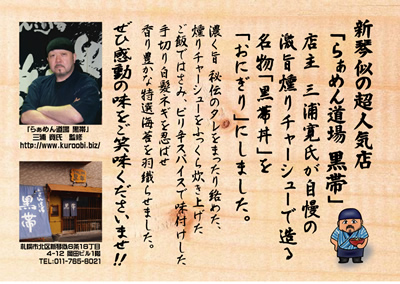 新琴似の超人気店
「らぁめん道場 黒帯」
店主 三浦寛氏が自慢の
激旨燻りチャーシューで造る
名物「黒帯丼」を
「おにぎり」にしました。
濃く旨 秘伝のタレをまったり絡めた、
燻りチャーシューをふっくら炊き上げた
ご飯ではさみ、ピリ辛スパイスで味付けした、
手切り白髪ネギを忍ばせ
香り豊かな特選海苔を羽織らせました。
ぜひ感動の味をご笑味くださいませ!!
「らぁめん道場 黒帯」
三浦 寛氏 監修
http://www.kuroobi.biz/
黒帯
札幌市北区新琴似6条16丁目
4-12 園田ビル1階
TEL:011-765-6021